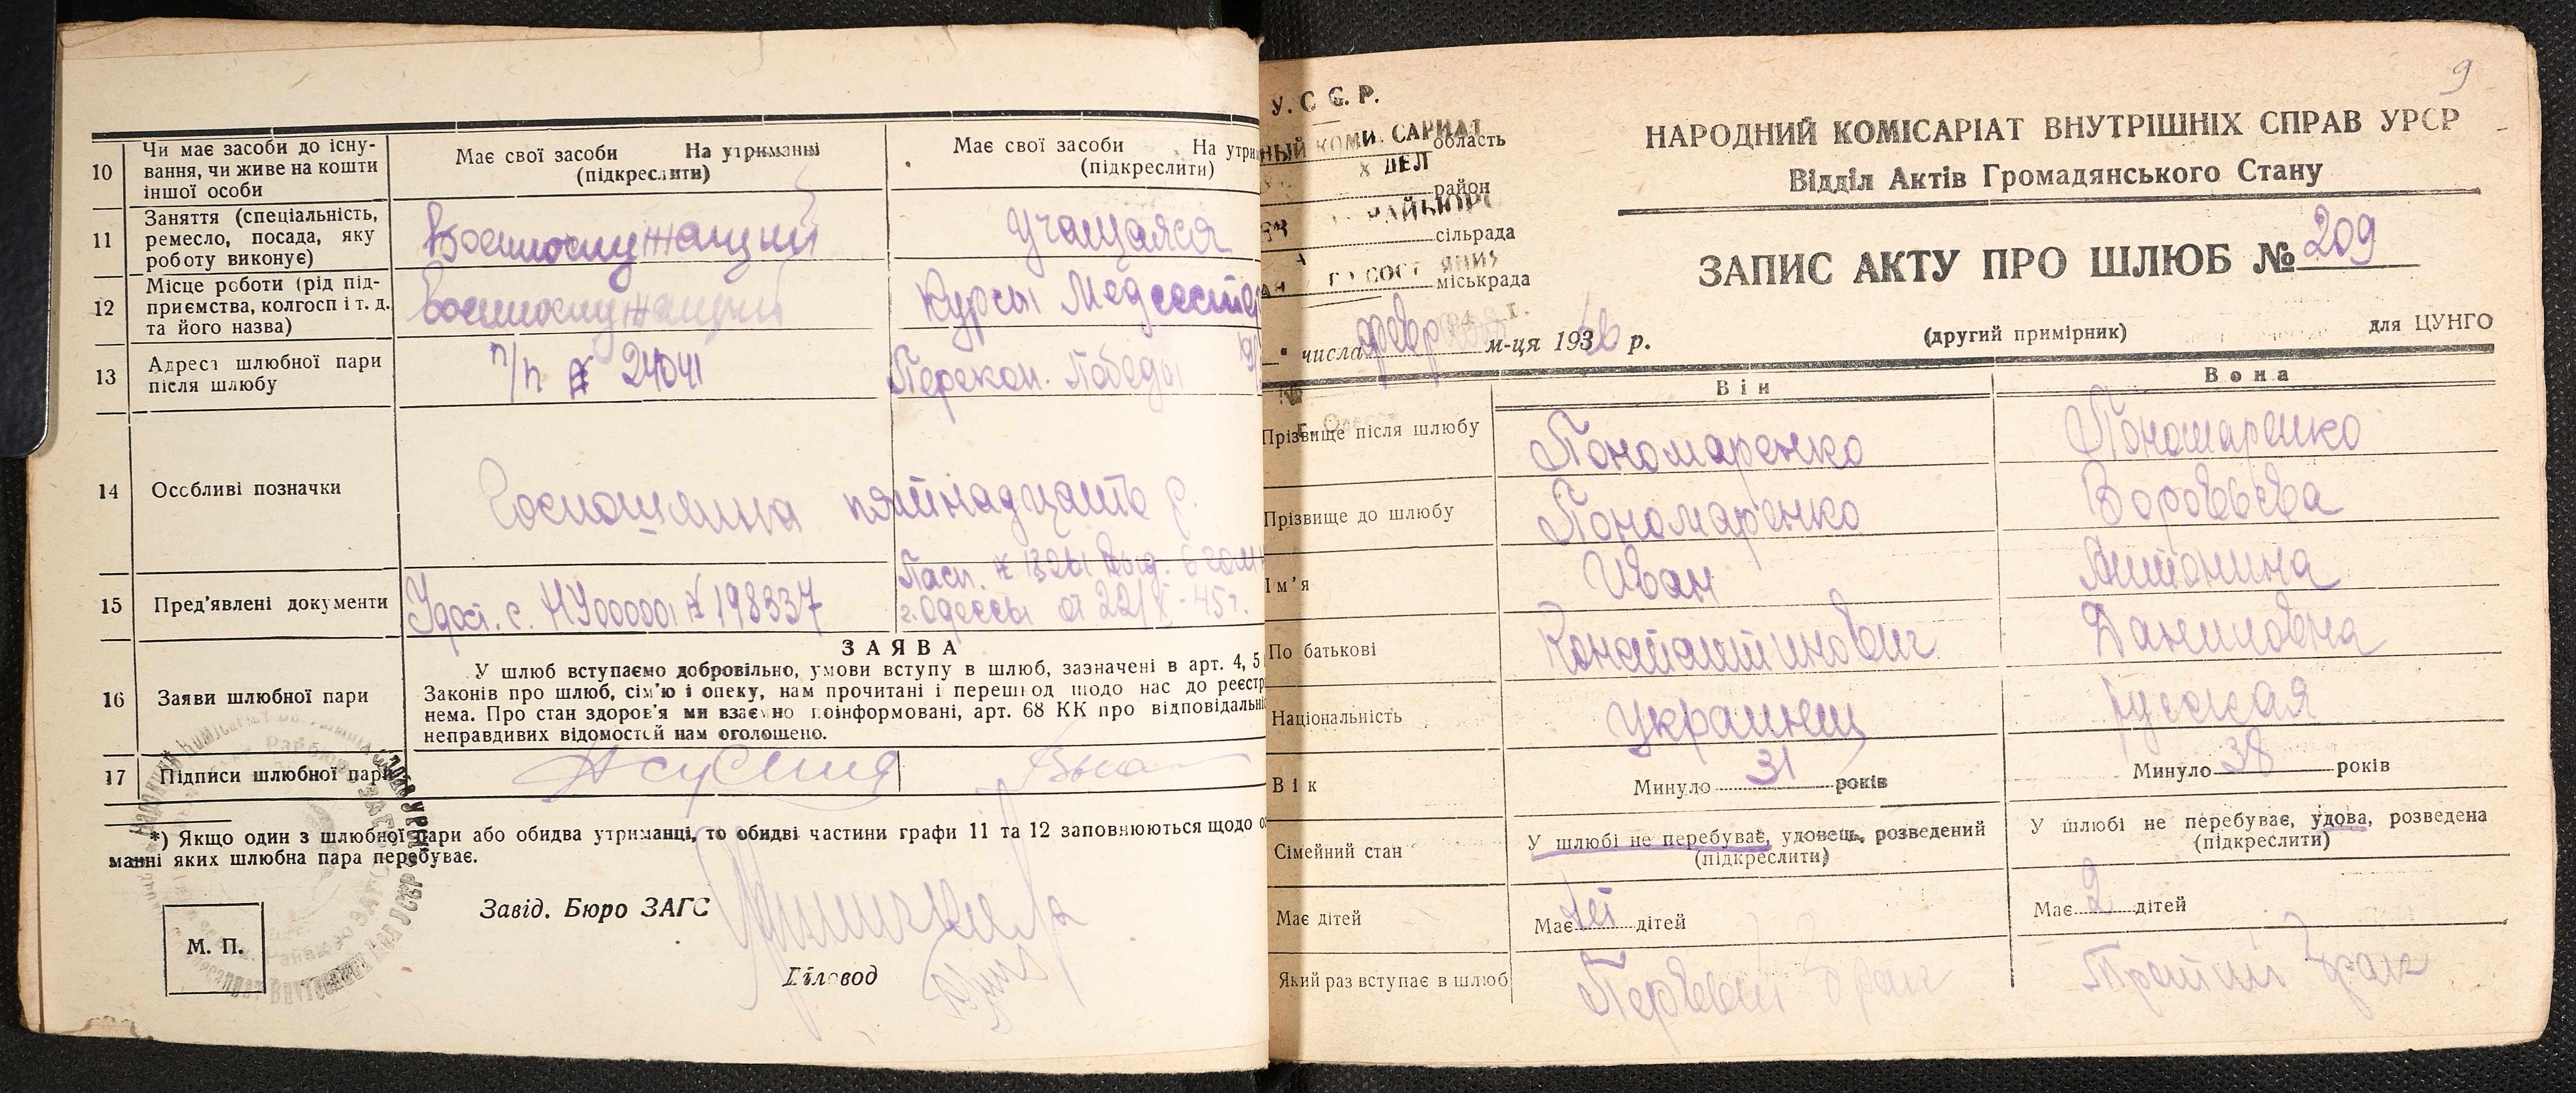 10
Чи має засоби до існу-
вання, чи живе на кошти
іншої особи
Має свої засоби На утриманні
(підкреслити)
Має свої засоби На утри
(підкреслити)
11
Заняття (спеціальність,
ремесло, посада, яку
роботу виконує)
Военнослужащий
учащаяся
12
Місце роботи (рід під-
приємства, колгосп і т. д.
та його назва)
Военнослужащий
Курсы Медсесте
13
Адреса шлюбної пари
після шлюбу
п/п № 24041
Перекоп. Победы
14
Особливі позначки
Госпошлина пятнадцать р.
15
Пред'явлені документи
Удост. с. НУ000001 № 198337
Пасп. № выд. 6
г. Одессы от 22/X-45г.
16
Заяви шлюбної пари
ЗАЯВА
У шлюб вступаємо добровільно, умови вступу в шлюб, зазначені в арт. 4, 5
Законів про шлюб, сім'ю і опеку, нам прочитані і перешкод щодо нас до реєстр
нема. Про стан здоров'я ми взаємно поінформовані, арт. 68 КК про відповідальні
неправдивих відомостей нам оголошено.
17
Підписи шлюбної пари
*) Якщо один з шлюбної пари або обидва утриманці, то обидві частини графи 11 та 12 заповнюються щодо о
манні яких шлюбна пара перебуває.
Завід. Бюро ЗАГС
М. П.
Діловод
9
У. С С. Р.
НЫЙ КОМИ. САРИАТ
область
Х ДЕЛ
район
РАЙБЮРО
сільрада
міськрада
НАРОДНИЙ КОМІСАРІАТ ВНУТРІШНІХ СПРАВ УРСР
Відділ Актів Громадянського Стану
ЗАПИС АКТУ ПРО ШЛЮБ № 209
" числа февр м-ця 1946 р.
(другий примірник)
для ЦУНГО
Він
Вона
Прізвище після шлюбу
Пономаренко
Пономаренко
Прізвище до шлюбу
Пономаренко
Воробьева
Ім'я
Иван
Антонина
По батькові
Константинович
Даниловна
Національність
украинец
русская
Вік
Минуло 31 років
Минуло 38 років
Сімейний стан
У шлюбі не перебуває, удовець, розведений
(підкреслити)
У шлюбі не перебуває, удова, розведена
(підкреслити)
Має дітей
Має нет дітей
Має 2 дітей
Який раз вступає в шлюб
Первый брак
Третий брак